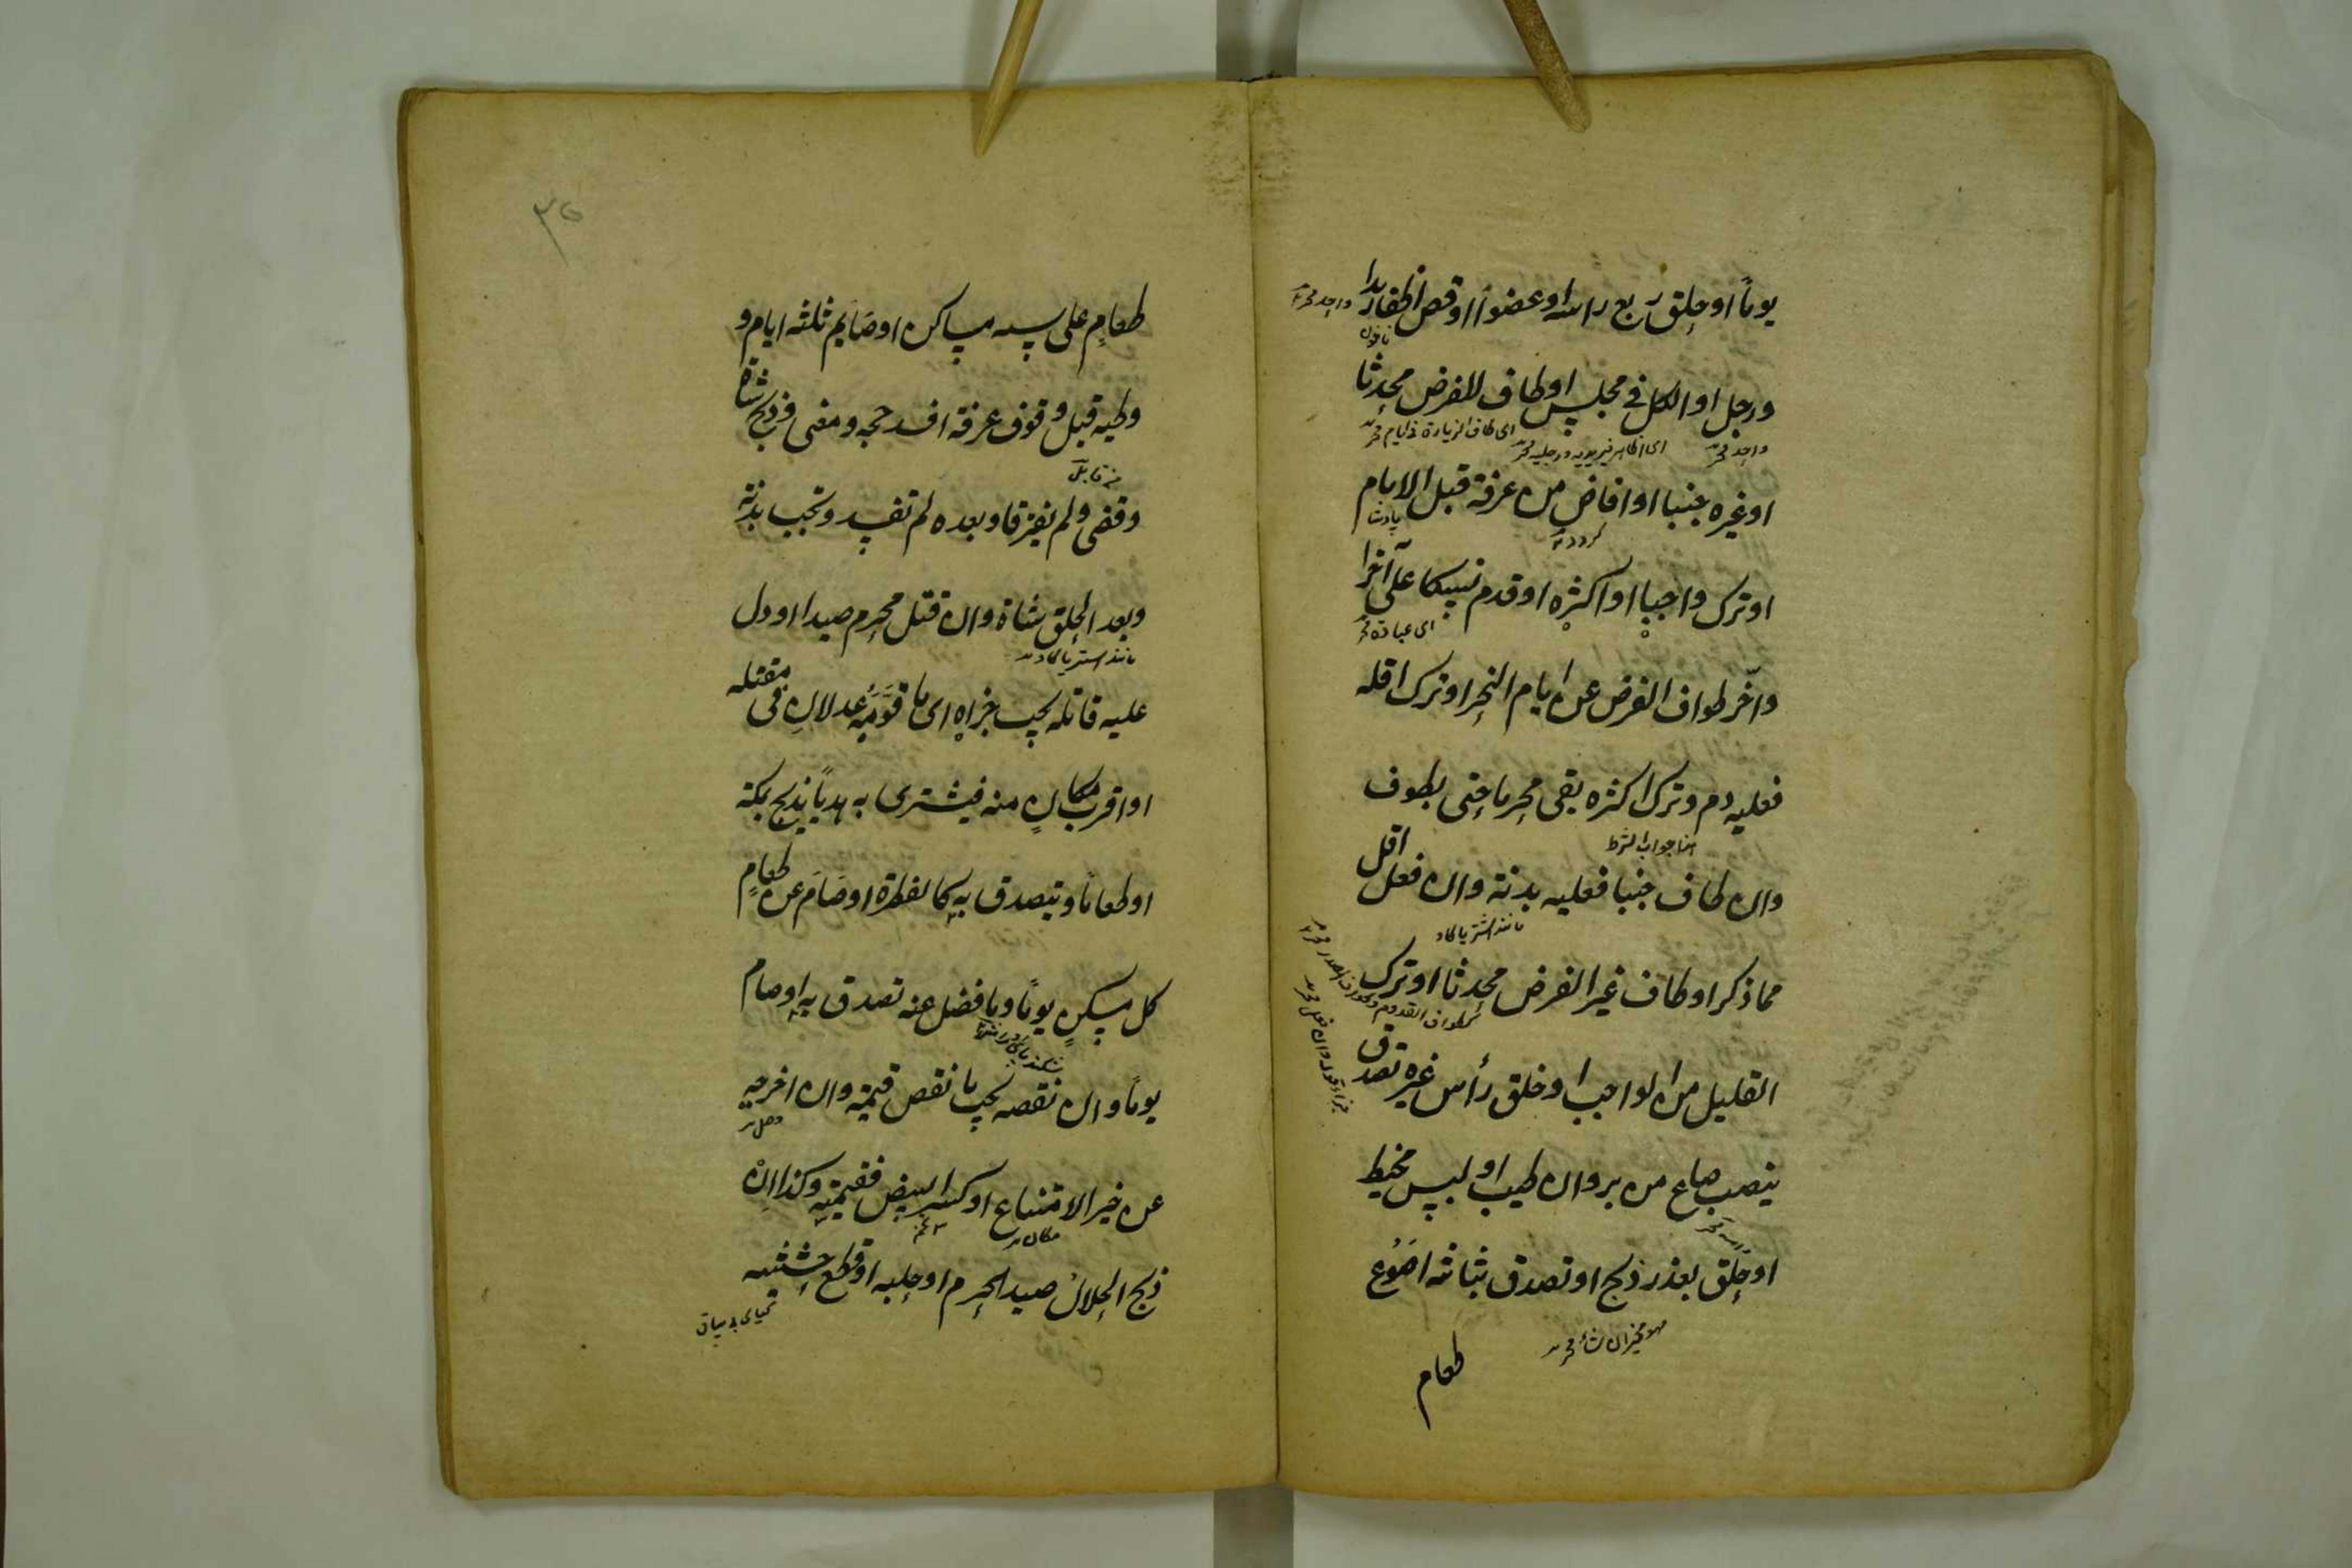 يوماً او حلق ربع راسه او عضواً او قص اظفار يدا
واحد
ناخن
ورجل او الكل في مجلس او طاف للفرض محدثا
واحد
اي اظافير يديه ورجليه
اي طاف الزيارة في ايام
او غيره جنبا او افاض من عرفة قبل الامام
او ترك واجبا او اكثره او قدم نسكا على آخرا
اي عبادة
واخّر طواف الفرض عن ايام النحر او ترك اقله
فعليه دم و ترك اكثره بقى محرما حتى يطوف
هذا جواب الشرط
وان طاف جنبا فعليه بدنة وان فعل اقل
مانند اشتر يا كاو
مما ذكر او طاف غير الفرض محدثا او ترك
كطواف القدوم وطواف الصدر
القليل من الواجب او حلق رأس غيره تصدق
بنصف صاع من بر وان طيب او لبس مخيط
او حلق بعذر ذبح او تصدق بثلثه اصوع
طعام
٣٥
طعامٍ على سته مساكن او صايم ثلثه ايام و
وطيه قبل وقوف عرفة افسد حجه ومضى و ذبح شاة
من قابل
وقضى ولم يفترقا وبعده لم تفسد وتجب بدنة
وبعد الحلق شاة وان قتل محرم صيدا او دل
مانند اشتر يا كاو
عليه قاتله يجب جزاه اى ما قوّمه عدلانِ فى مقتله
او اقرب مكانٍ منه فيشترى به هدياً يذبح بمكة
او طعاماً ويتصدق به كالفطرة او صام عن طعامٍ
كل مسكينٍ يوماً وما فضل عنه تصدق به او صام
يوماً وان نقصه يجب ما نقص قيمته وان اخرجه
عن خير الامتناع او كسر البيض فقيمته وكذا انْ
مكان
ذبح الحلالُ صيد الحرم او حلبه او قطع حشيشه